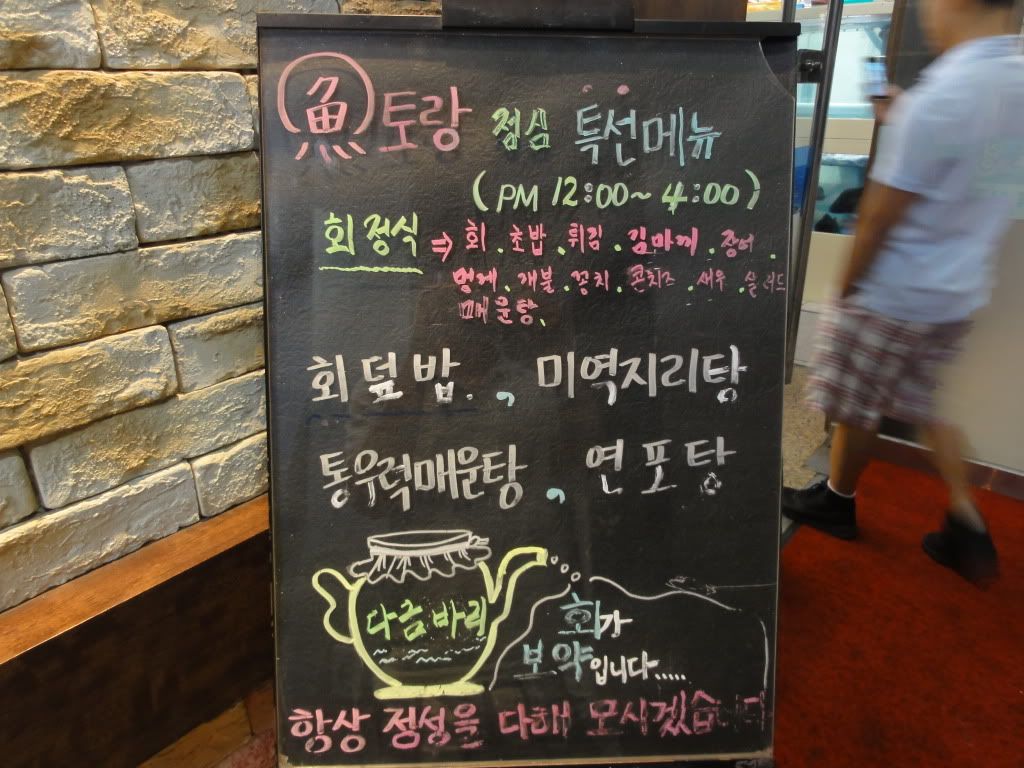 魚 토랑 점심 특선메뉴
(PM 12:00~4:00)
회정식 ⇒ 회. 초밥. 튀김. 김마끼. 장어.
멍게. 개불. 꽁치. 콘치즈. 새우. 샐러드
매운탕.
회덮밥. , 미역지리탕
통우럭매운탕 , 연포탕
다금바리
회가
보약입니다.....
항상 정성을 다해 모시겠습니다